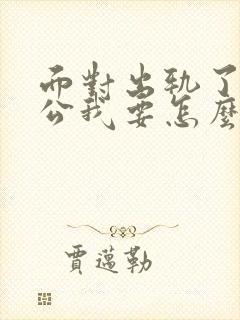 面對出軌了
公我要怎麼
賈邁勒